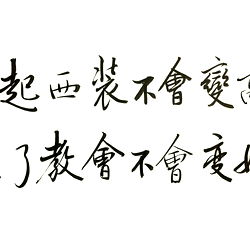 起西装不會變
了教會不會变